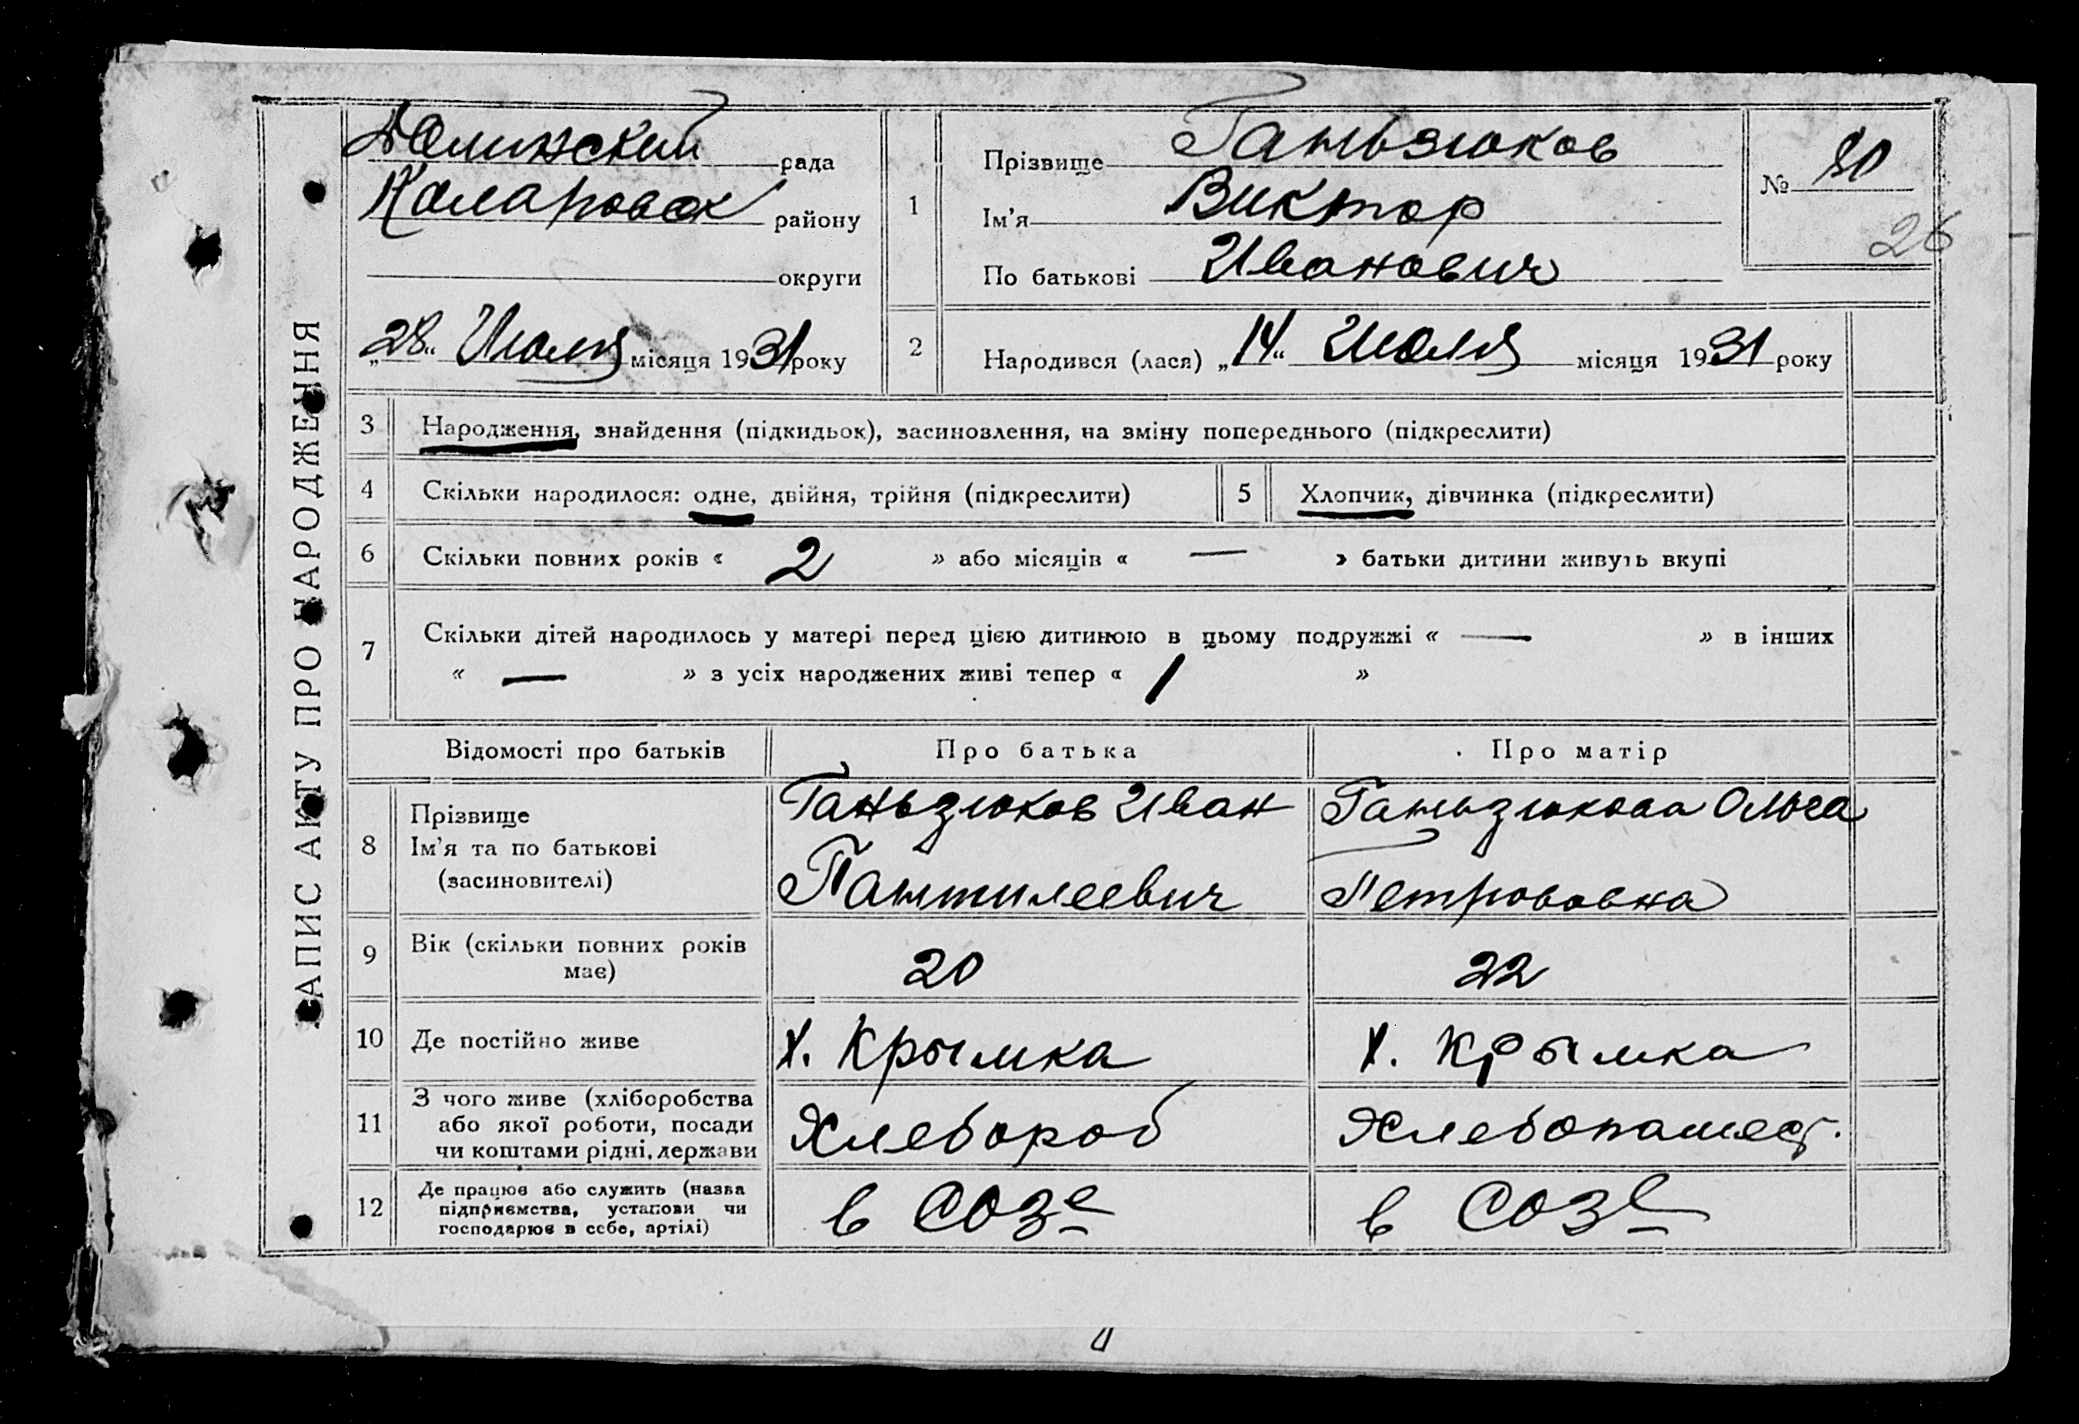 ЗАПИС АКТУ ПРО НАРОДЖЕННЯ
рада
Коларовск району
округи
„28“ Июля місяця 1931 року
1
Прізвище Ганьзюков
Ім'я Виктор
По батькові Иванович
№ 80
26
2
Народився (лася) „14“ Июля місяця 1931 року
3 Народження, знайдення (підкидьок), засиновлення, на зміну попереднього (підкреслити)
4 Скільки народилося: одне, двійня, трійня (підкреслити)
5 Хлопчик, дівчинка (підкреслити)
6 Скільки повних років « 2 » або місяців « — » батьки дитини живуть вкупі
7 Скільки дітей народилось у матері перед цією дитиною в цьому подружжі « — » в інших
« — » з усіх народжених живі тепер « 1 »
Відомості про батьків Про батька Про матір
8
Прізвище
Ім'я та по батькові
(засиновителі)
Ганьзюков Иван
Пантилеевич
Ганьзюкова Ольга
Петрововна
9
Вік (скільки повних років
має)
20
22
10 Де постійно живе
х. Крымка
х. Крымка
11
З чого живе (хліборобства
або якої роботи, посади
чи коштами рідні, держави
Хлебороб
Хлебопашест.
12
Де працює або служить (назва
підприємства, установи чи
господарює в себе, артілі)
в СОЗе
в СОЗе